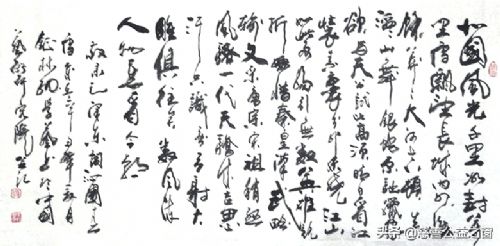 北国风光千里冰封万
里雪飘望长城内外惟
馀莽莽大河上下顿失
滔滔山舞银蛇原驰蜡象
欲与天公试比高须晴日看红
装素裹分外妖娆江山
如此多娇引无数英雄竞
折腰惜秦皇汉武略
输文采唐宗宋祖稍逊
风骚一代天骄成吉思
汗只识弯弓射大
雕俱往矣数风流
人物还看今朝
敬录毛泽东词沁园春
雪
于中国
艺术研究院
头条